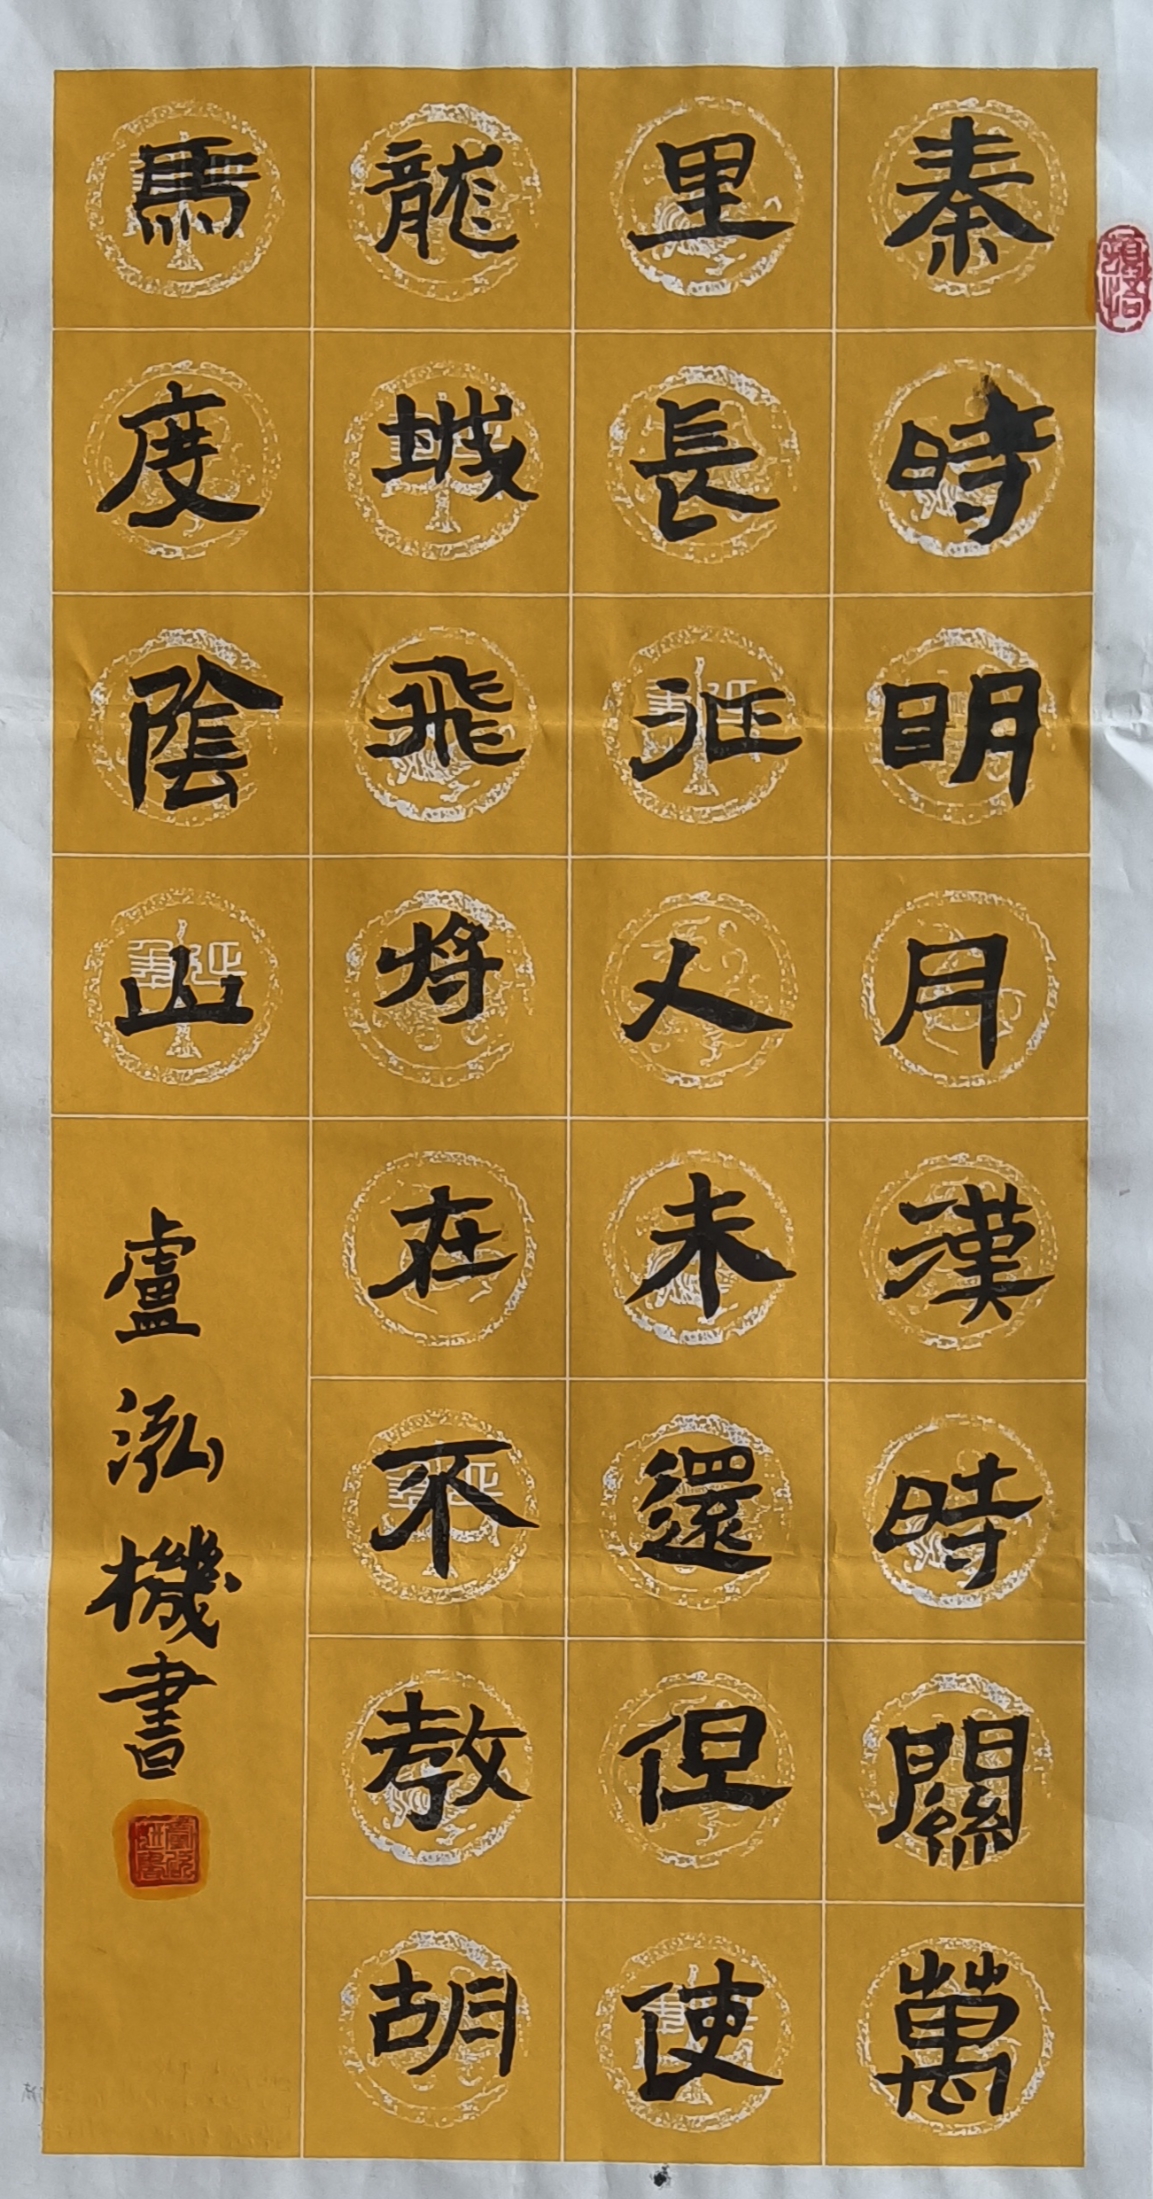 秦時明月漢時關萬
里長征人未還但使
龍城飛将在不教胡
馬度陰山
盧泓機書